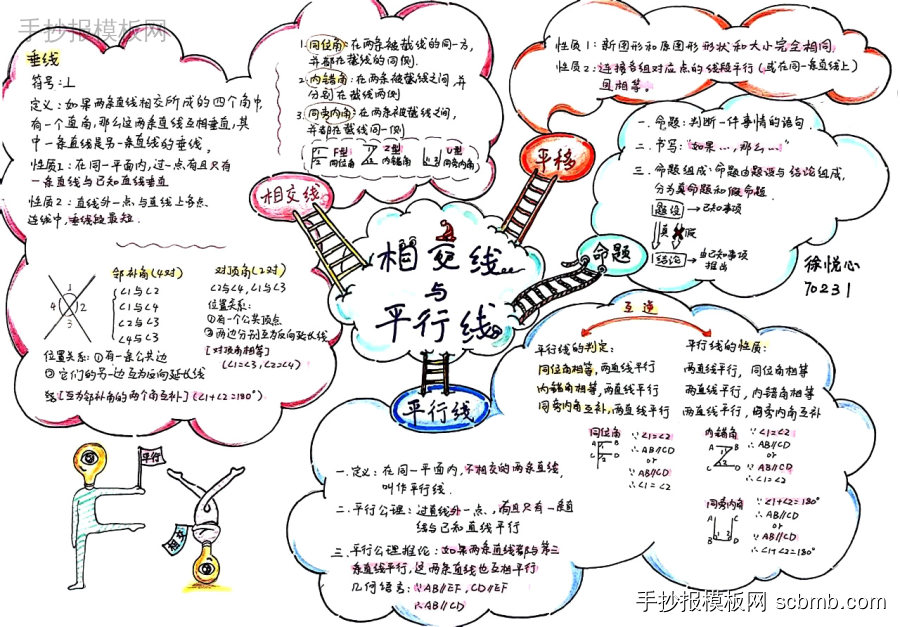 手抄报模板网
垂线
符号:⊥
定义:如果两条直线相交所成的四个角中
有一个直角,那么这两条直线互相垂直,其
中一条直线是另一条直线的垂线。
性质1:在同一平面内,过一点有且只有
一条直线与已知直线垂直
性质2:直线外一点与直线上各点
连线中,垂线段最短.
1.同位角:在两条被截线的同一方,
并都在截线的同侧.
2.内错角:在两条被截线之间,并
分别在截线两侧
3.同旁内角:在两条被截线之间,
并都在截线同一侧
F型
同位角
Z型
内错角
U型
同旁内角
相交线
1
4
2
3
邻补角(4对)
∠1与∠2
∠1与∠4
∠2与∠3
∠4与∠3
位置关系:①有一条公共边
②它们的另一边互为反向延长线
[互为邻补角的两个角互补](∠1+∠2=180°)
对顶角(2对)
∠2与∠4,∠1与∠3
位置关系:
①有一个公共顶点
②两边分别互为反向延长线
[对顶角相等]
(∠1=∠3,∠2=∠4)
性质1:新图形和原图形形状和大小完全相同.
性质2:连接各组对应点的线段平行(或在同一条直线上)
且相等。
平移
一.命题:判断一件事情的语句.
二.书写:"如果…,那么…"
三.命题组成:命题由题设与结论组成,
分为真命题和假命题.
题设→已知事项
真
假
结论→由已知事项
推出
命题
徐悦心
70231
相交线
与
平行线
平行线
一.定义:在同一平面内,不相交的两条直线,
叫作平行线.
二.平行公理:过直线外一点,有且只有一条直
线与已知直线平行
三.平行公理推论:如果两条直线都与第三
条直线平行,这两条直线也互相平行
几何语言:∵AB∥EF,CD∥EF
∴AB∥CD
互逆
平行线的判定:
同位角相等,两直线平行
内错角相等,两直线平行
同旁内角互补,两直线平行
平行线的性质:
两直线平行,同位角相等
两直线平行,内错角相等
两直线平行,同旁内角互补
同位角
∵∠1=∠2
∴AB∥CD
or
∵AB∥CD
∴∠1=∠2
内错角
∵∠1=∠2
∴AB∥CD
or
∵AB∥CD
∴∠1=∠2
同旁内角
∵∠1+∠2=180°
∴AB∥CD
or
∵AB∥CD
∴∠1+∠2=180°
平行
相交
手抄报模板网 scbmb.com